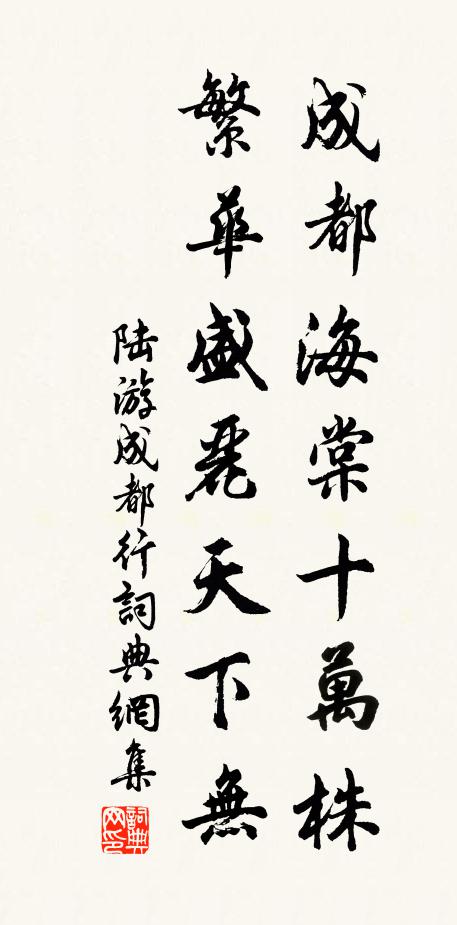 成都海棠十萬株
繁華盛麗天下無
陆游成都行詞典網集
詞典网印